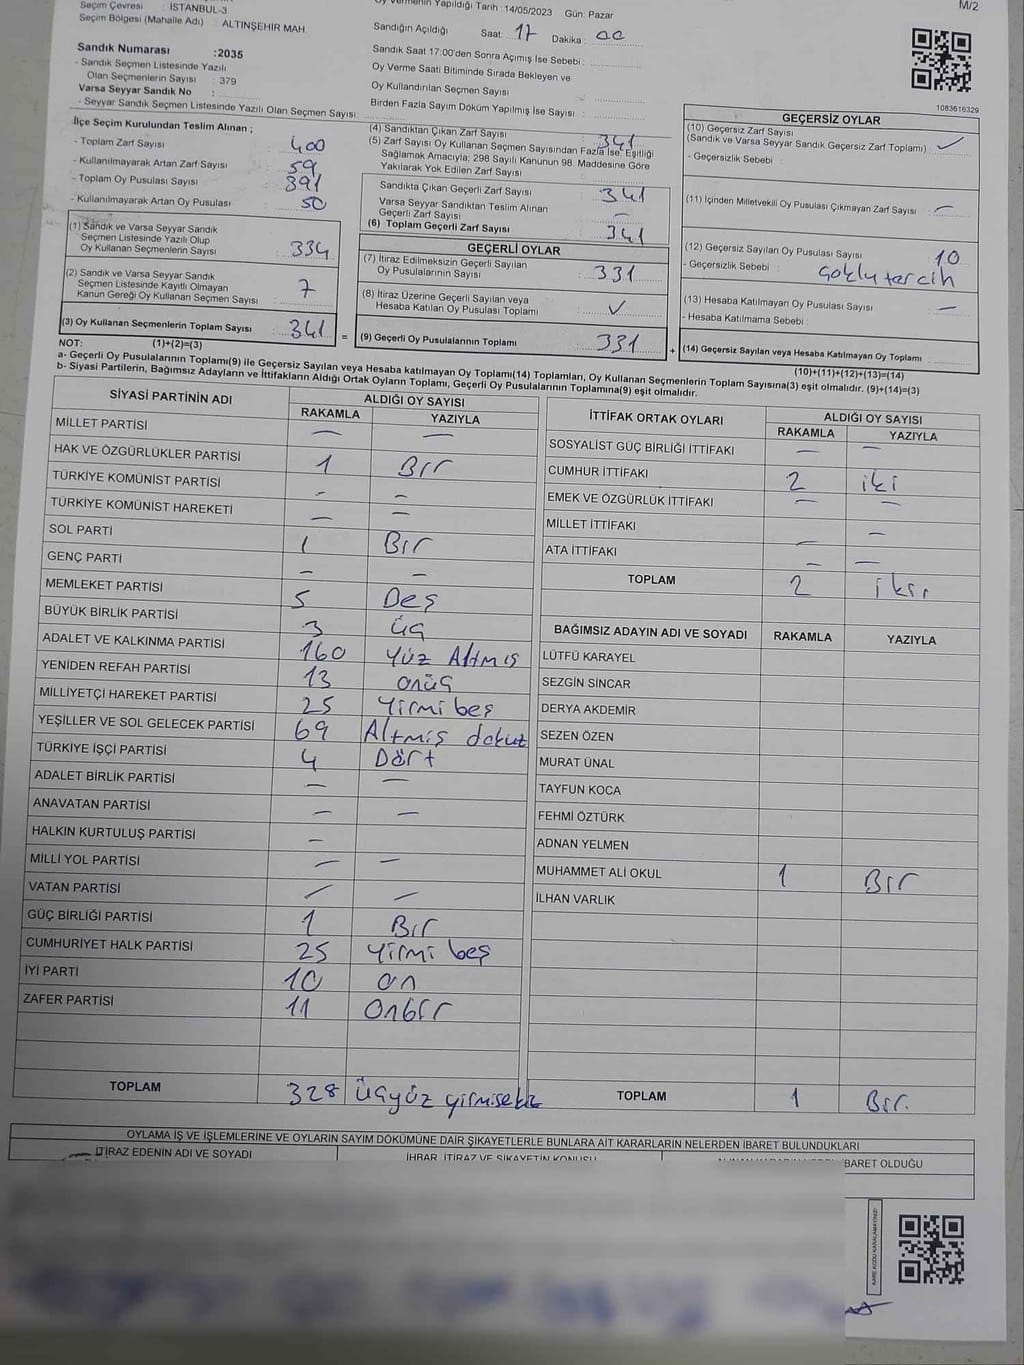 Seçim Çevresi : İSTANBUL-3
Seçim Bölgesi (Mahalle Adı) : ALTINŞEHİR MAH.
Oy Vermenin Yapıldığı Tarih : 14/05/2023 Gün: Pazar
M/2
Sandığın Açıldığı Saat: 17 Dakika : 00
Sandık Numarası :2035
- Sandık Seçmen Listesinde Yazılı
Olan Seçmenlerin Sayısı : 379
Varsa Seyyar Sandık No :
- Seyyar Sandık Seçmen Listesinde Yazılı Olan Seçmen Sayısı :
Sandık Saat 17:00'den Sonra Açımış İse Sebebi :
Oy Verme Saati Bitiminde Sırada Bekleyen ve
Oy Kullandırılan Seçmen Sayısı :
Birden Fazla Sayım Döküm Yapılmış İse Sayısı :
1083616329
İlçe Seçim Kurulundan Teslim Alınan ;
- Toplam Zarf Sayısı : 400
- Kullanılmayarak Artan Zarf Sayısı : 59
- Toplam Oy Pusulası Sayısı : 391
- Kullanılmayarak Artan Oy Pusulası : 50
(1) Sandık ve Varsa Seyyar Sandık
Seçmen Listesinde Yazılı Olup
Oy Kullanan Seçmenlerin Sayısı : 334
(2) Sandık ve Varsa Seyyar Sandık
Seçmen Listesinde Kayıtlı Olmayan
Kanun Gereği Oy Kullanan Seçmen Sayısı : 7
(3) Oy Kullanan Seçmenlerin Toplam Sayısı : 341
(4) Sandıktan Çıkan Zarf Sayısı : 341
(5) Zarf Sayısı Oy Kullanan Seçmen Sayısından Fazla İse, Eşitliği
Sağlamak Amacıyla; 298 Sayılı Kanunun 98. Maddesine Göre
Yakılarak Yok Edilen Zarf Sayısı :
Sandıkta Çıkan Geçerli Zarf Sayısı : 341
Varsa Seyyar Sandıktan Teslim Alınan
Geçerli Zarf Sayısı : —
(6) Toplam Geçerli Zarf Sayısı : 341
GEÇERLİ OYLAR
(7) İtiraz Edilmeksizin Geçerli Sayılan
Oy Pusulalarının Sayısı : 331
(8) İtiraz Üzerine Geçerli Sayılan veya
Hesaba Katılan Oy Pusulası Toplamı : ✓
= (9) Geçerli Oy Pusulalarının Toplamı : 331
GEÇERSİZ OYLAR
(10) Geçersiz Zarf Sayısı
(Sandık ve Varsa Seyyar Sandık Geçersiz Zarf Toplamı) : ✓
- Geçersizlik Sebebi :
(11) İçinden Milletvekili Oy Pusulası Çıkmayan Zarf Sayısı : —
(12) Geçersiz Sayılan Oy Pusulası Sayısı : 10
- Geçersizlik Sebebi : Çoklu tercih
(13) Hesaba Katılmayan Oy Pusulası Sayısı : —
- Hesaba Katılmama Sebebi :
+ (14) Geçersiz Sayılan veya Hesaba Katılmayan Oy Toplamı :
NOT: (1)+(2)=(3)
(10)+(11)+(12)+(13)=(14)
a- Geçerli Oy Pusulalarının Toplamı(9) ile Geçersiz Sayılan veya Hesaba katılmayan Oy Toplamı(14) Toplamları, Oy Kullanan Seçmenlerin Toplam Sayısına(3) eşit olmalıdır. (9)+(14)=(3)
b- Siyasi Partilerin, Bağımsız Adayların ve İttifakların Aldığı Ortak Oyların Toplamı, Geçerli Oy Pusulalarının Toplamına(9) eşit olmalıdır.
SİYASİ PARTİNİN ADI ALDIĞI OY SAYISI
RAKAMLA YAZIYLA
MİLLET PARTİSİ — —
HAK VE ÖZGÜRLÜKLER PARTİSİ 1 Bir
TÜRKİYE KOMÜNİST PARTİSİ — —
TÜRKİYE KOMÜNİST HAREKETİ — —
SOL PARTİ 1 Bir
GENÇ PARTİ — —
MEMLEKET PARTİSİ 5 Beş
BÜYÜK BİRLİK PARTİSİ 3 üç
ADALET VE KALKINMA PARTİSİ 160 Yüz Altmış
YENİDEN REFAH PARTİSİ 13 onüç
MİLLİYETÇİ HAREKET PARTİSİ 25 Yirmi beş
YEŞİLLER VE SOL GELECEK PARTİSİ 69 Altmış dokuz
TÜRKİYE İŞÇİ PARTİSİ 4 Dört
ADALET BİRLİK PARTİSİ — —
ANAVATAN PARTİSİ — —
HALKIN KURTULUŞ PARTİSİ —
MİLLİ YOL PARTİSİ — —
VATAN PARTİSİ — —
GÜÇ BİRLİĞİ PARTİSİ 1 Bir
CUMHURİYET HALK PARTİSİ 25 Yirmi beş
İYİ PARTİ 10 on
ZAFER PARTİSİ 11 Onbir
TOPLAM 328 üçyüz yirmisekiz
İTTİFAK ORTAK OYLARI ALDIĞI OY SAYISI
RAKAMLA YAZIYLA
SOSYALİST GÜÇ BİRLİĞİ İTTİFAKI — —
CUMHUR İTTİFAKI 2 iki
EMEK VE ÖZGÜRLÜK İTTİFAKI — —
MİLLET İTTİFAKI —
ATA İTTİFAKI — —
TOPLAM 2
BAĞIMSIZ ADAYIN ADI VE SOYADI RAKAMLA YAZIYLA
LÜTFÜ KARAYEL
SEZGİN SİNCAR
DERYA AKDEMİR
SEZEN ÖZEN
MURAT ÜNAL
TAYFUN KOCA
FEHMİ ÖZTÜRK
ADNAN YELMEN
MUHAMMET ALİ OKUL 1 Bir
İLHAN VARLIK
TOPLAM 1 Bir.
OYLAMA İŞ VE İŞLEMLERİNE VE OYLARIN SAYIM DÖKÜMÜNE DAİR ŞİKAYETLERLE BUNLARA AİT KARARLARIN NELERDEN İBARET BULUNDUKLARI
İTİRAZ EDENİN ADI VE SOYADI İHBAR, İTİRAZ VE ŞİKAYETİN KONUSU İBARET OLDUĞU
KARE KODU KARALAMAYINIZ!